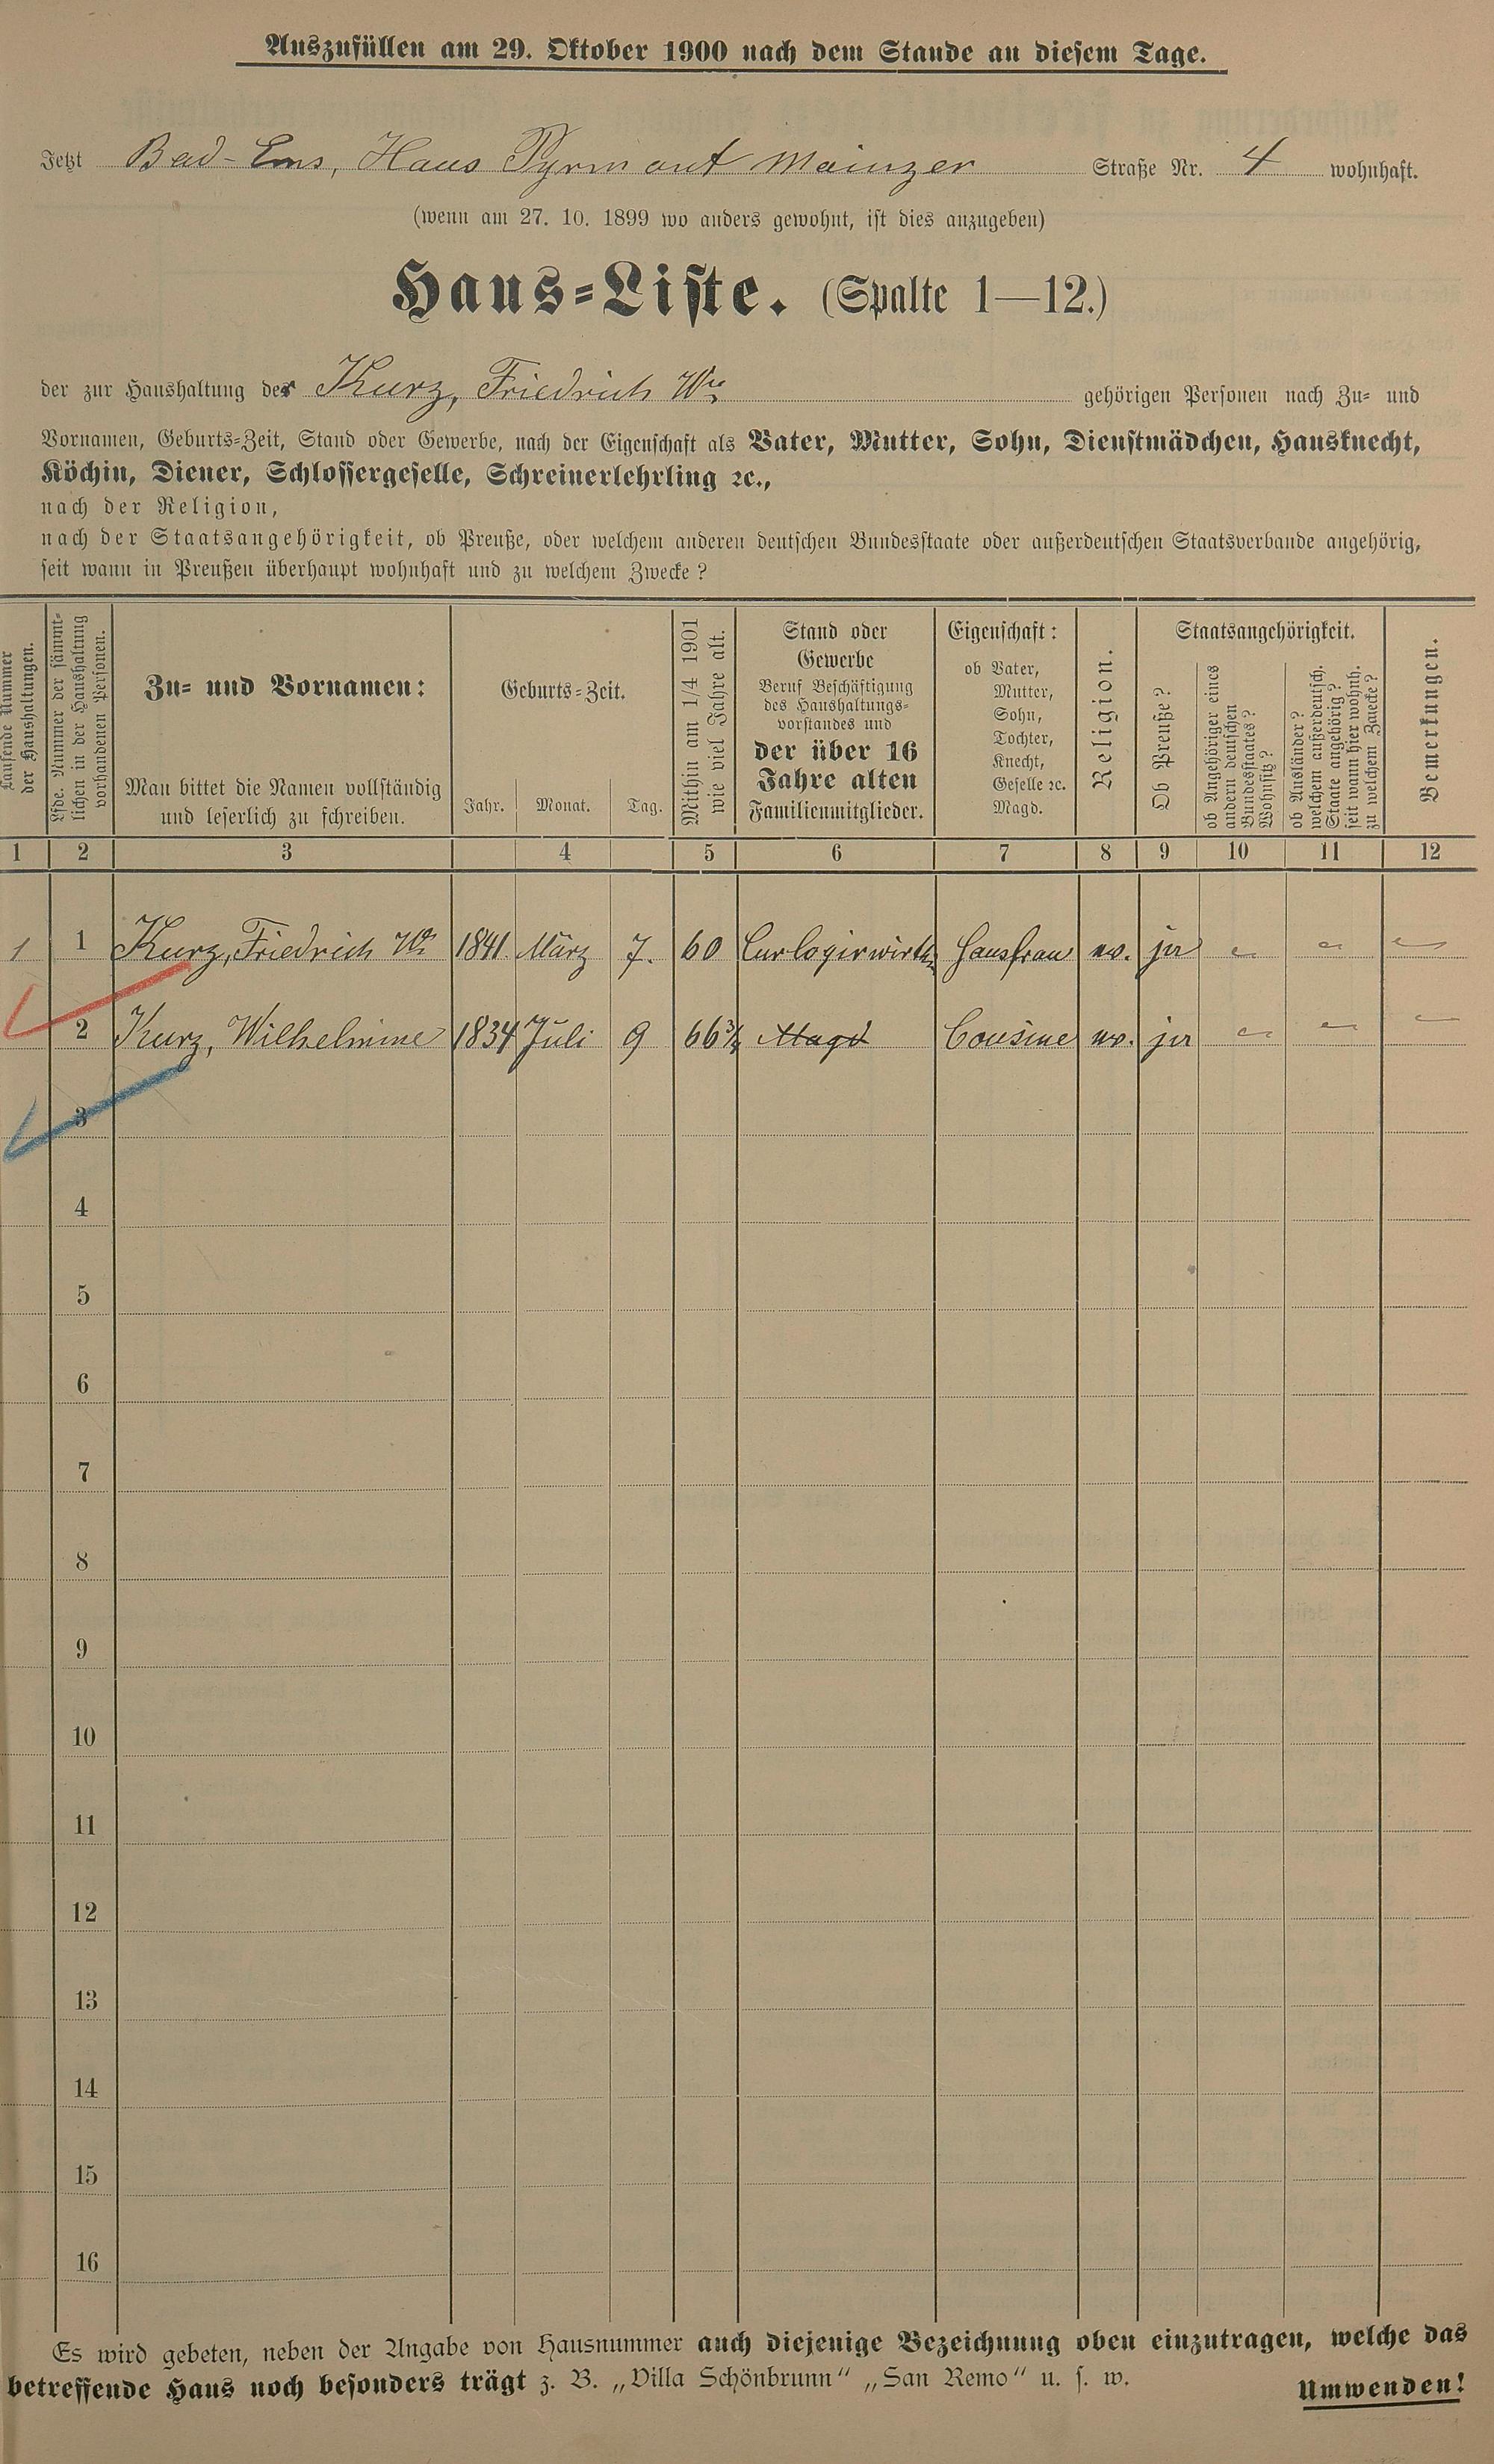 Auszufüllen am 29. Oktober 1900 nach dem Stande an diesem Tage.
Jetzt Bad-Ems, Haus Pyrmont Mainzer Straße Nr. 4 wohnhaft.
(wenn am 27. 10. 1899 wo anders gewohnt, ist dies anzugeben)
Haus-Liste. (Spalte 1—12.)
der zur Haushaltung der Kurz, Friedrich Wwe gehörigen Personen nach Zu- und
Vornamen, Geburts-Zeit, Stand oder Gewerbe, nach der Eigenschaft als Vater, Mutter, Sohn, Dienstmädchen, Hausknecht,
Köchin, Diener, Schlossergeselle, Schreinerlehrling ꝛc.,
nach der Religion,
nach der Staatsangehörigkeit, ob Preuße, oder welchem anderen deutschen Bundesstaate oder außerdeutschen Staatsverbande angehörig,
seit wann in Preußen überhaupt wohnhaft und zu welchem Zwecke?
Laufende Nummer
der Haushaltungen.
Lfde. Nummer der sämmt-
lichen in der Haushaltung
vorhandenen Personen.
Zu- und Vornamen:
Man bittet die Namen vollständig
und leserlich zu schreiben.
Geburts-Zeit.
Jahr. Monat. Tag.
Mithin am 1/4 1901
wie viel Jahre alt.
Stand oder
Gewerbe
Beruf Beschäftigung
des Haushaltungs-
vorstandes und
der über 16
Jahre alten
Familienmitglieder.
Eigenschaft:
ob Vater,
Mutter,
Sohn,
Tochter,
Knecht,
Geselle ꝛc.
Magd.
Religion.
Staatsangehörigkeit.
Ob Preuße?
ob Angehöriger eines
andern deutschen
Bundesstaates?
Wohnsitz?
ob Ausländer?
welchem außerdeutsch.
Staate angehörig?
seit wann hier wohnh.
zu welchem Zwecke?
Bemerkungen.
1 2 3 4 5 6 7 8 9 10 11 12
1 1 Kurz, Friedrich We 1841 März 7. 60 Curlogirwirth Hausfrau ev. ja
2 Kurz, Wilhelmine 1834 Juli 9 66¾ Magd Cousine ev. ja
3
4
5
6
7
8
9
10
11
12
13
14
15
16
Es wird gebeten, neben der Angabe von Hausnummer auch diejenige Bezeichnung oben einzutragen, welche das
betreffende Haus noch besonders trägt z. B. „Villa Schönbrunn“ „San Remo“ u. s. w.
Umwenden!